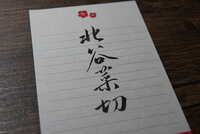 北谷菜切